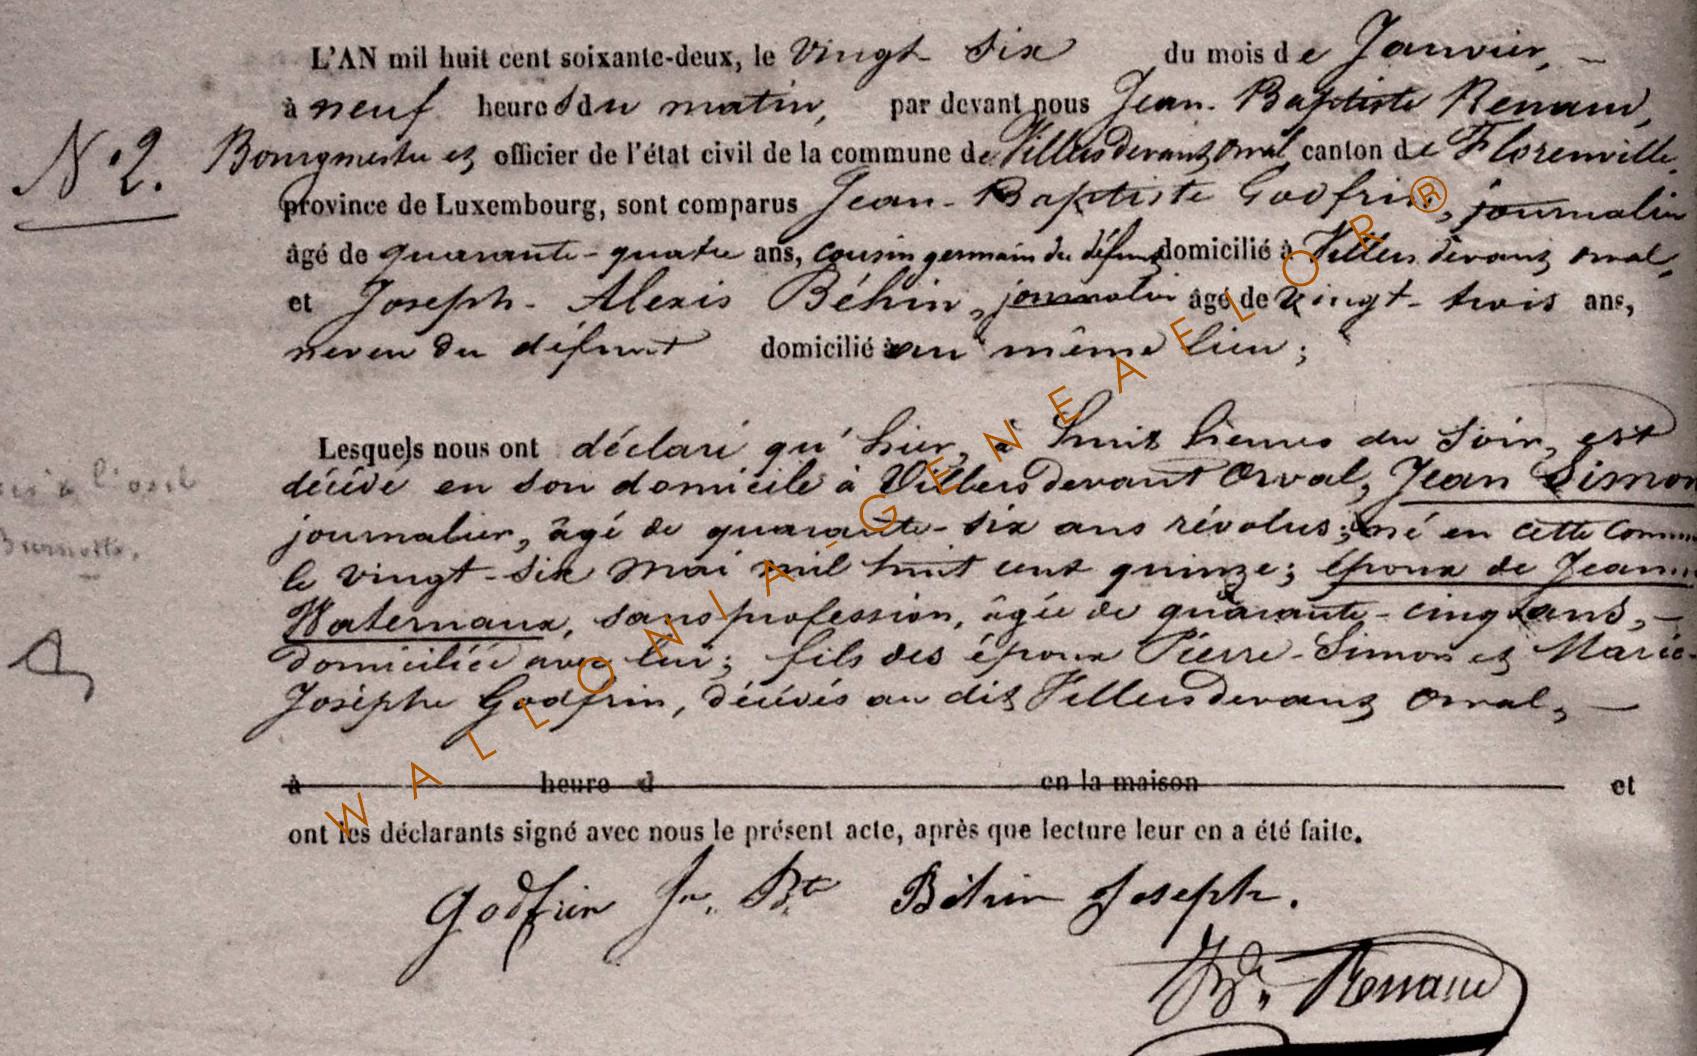 L'AN mil huit cent soixante-deux, le vingt six du mois de Janvier, -
à neuf heures du matin, par devant nous Jean-Baptiste Renaud,
N° 2. Bourgmestre et officier de l'état civil de la commune de Villers devant Orval, canton de Florenville,
province de Luxembourg, sont comparus Jean-Baptiste Godfrin, journalier
âgé de quarante-quatre ans, cousin germain du défunt domicilié à Villers devant Orval,
et Joseph-Alexis Béhin, journalier âgé de vingt-trois ans,
neveu du défunt domicilié au même lieu;
Lesquels nous ont déclaré qu'hier, à huit heures du soir, est
décédé en son domicile à Villers devant Orval, Jean Simon
journalier, âgé de quarante-six ans révolus; né en cette
le vingt-six mai mil huit cent quinze; époux de
Waternaux, sans profession, âgée de quarante-cinq ans, -
domiciliée avec lui; fils des époux Pierre-Simon et Marie-
Josèphe Godfrin, décédés au dit Villers devant Orval, -
à heure d en la maison et
ont les déclarants signé avec nous le présent acte, après que lecture leur en a été faite.
Godfrin Jn. Bte Béhin Joseph.
Renaud
WALLONIA-GENEALOR®